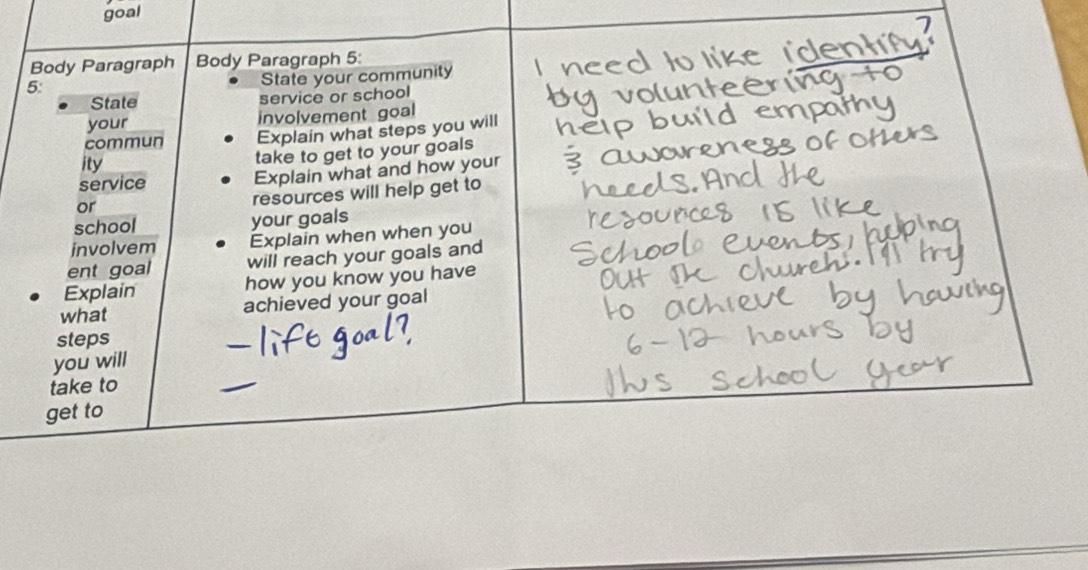 goal
Body Paragraph
5:
• State
your
commun
ity
service
or
school
involvem
ent goal
• Explain
what
steps
you will
take to
get to
Body Paragraph 5:
• State your community
service or school
involvement goal
• Explain what steps you will
take to get to your goals
• Explain what and how your
resources will help get to
your goals
• Explain when when you
will reach your goals and
how you know you have
achieved your goal
- life goal?
-
I need to like identify?
by volunteering to
help build empathy
& awareness of others
needs. And the
resources is like
school events, helping
out the church. I'll try
to achieve by having
6-12 hours by
this school year